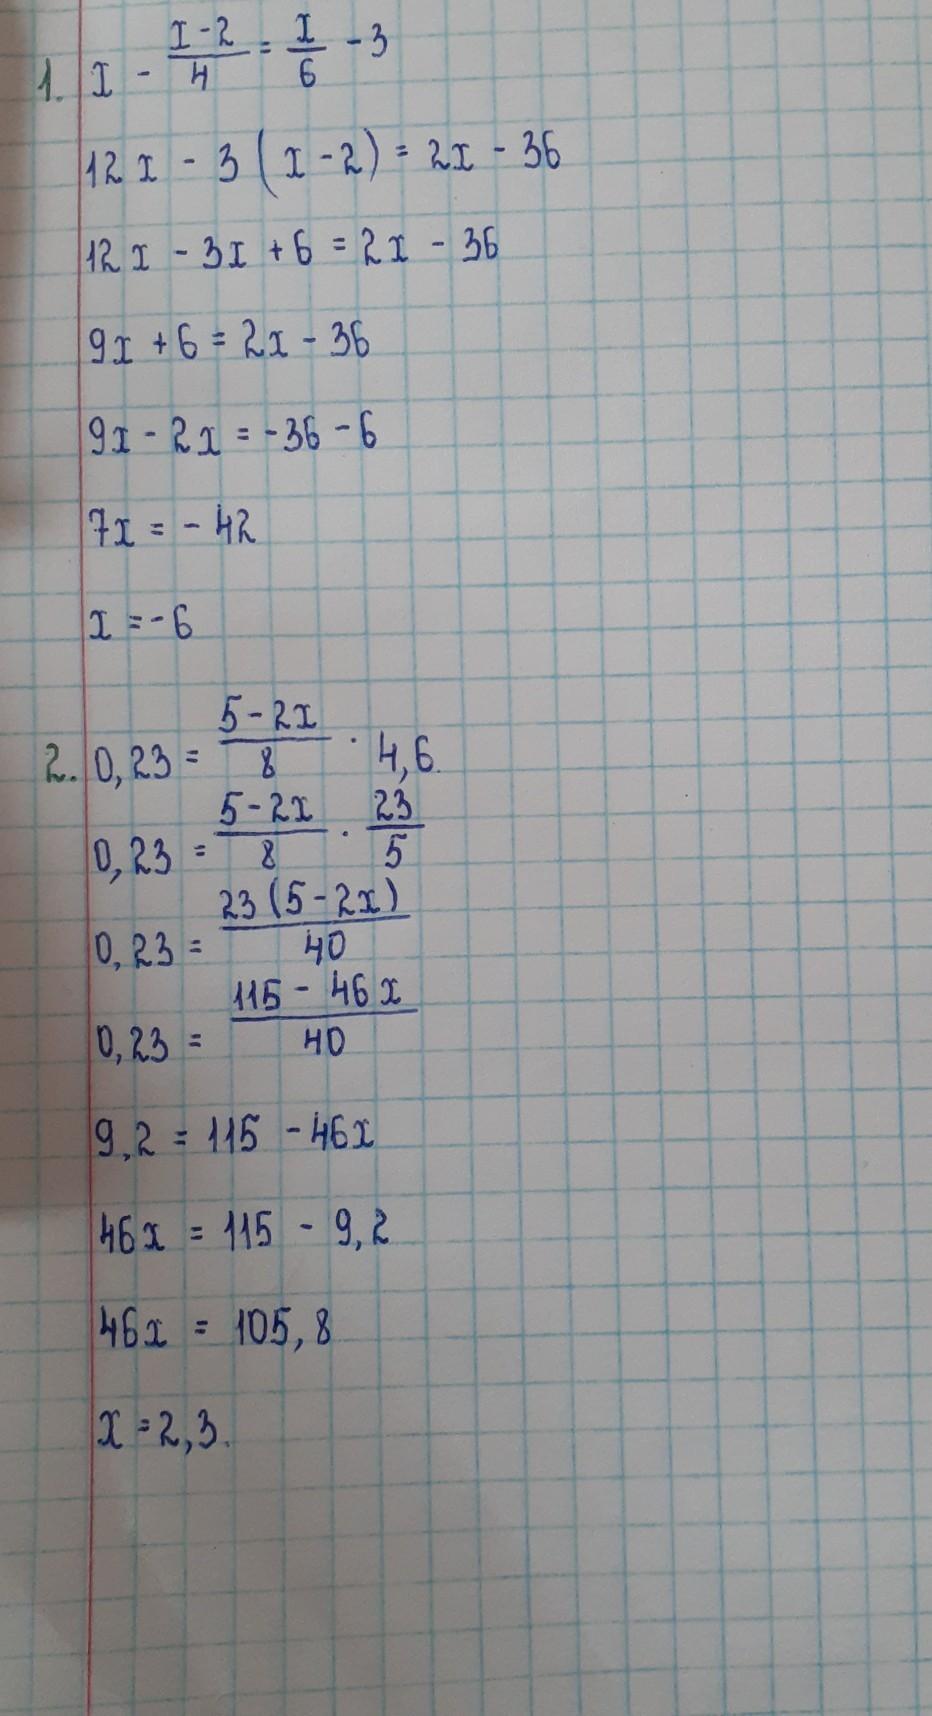 1. x - (x-2)/4 = x/6 - 3
12x - 3(x-2) = 2x - 36
12x - 3x + 6 = 2x - 36
9x + 6 = 2x - 36
9x - 2x = -36 - 6
7x = -42
x = -6
2. 0,23 = (5-2x)/8 · 4,6
0,23 = (5-2x)/8 · 23/5
0,23 = 23(5-2x)/40
0,23 = (115 - 46x)/40
9,2 = 115 - 46x
46x = 115 - 9,2
46x = 105,8
x = 2,3.